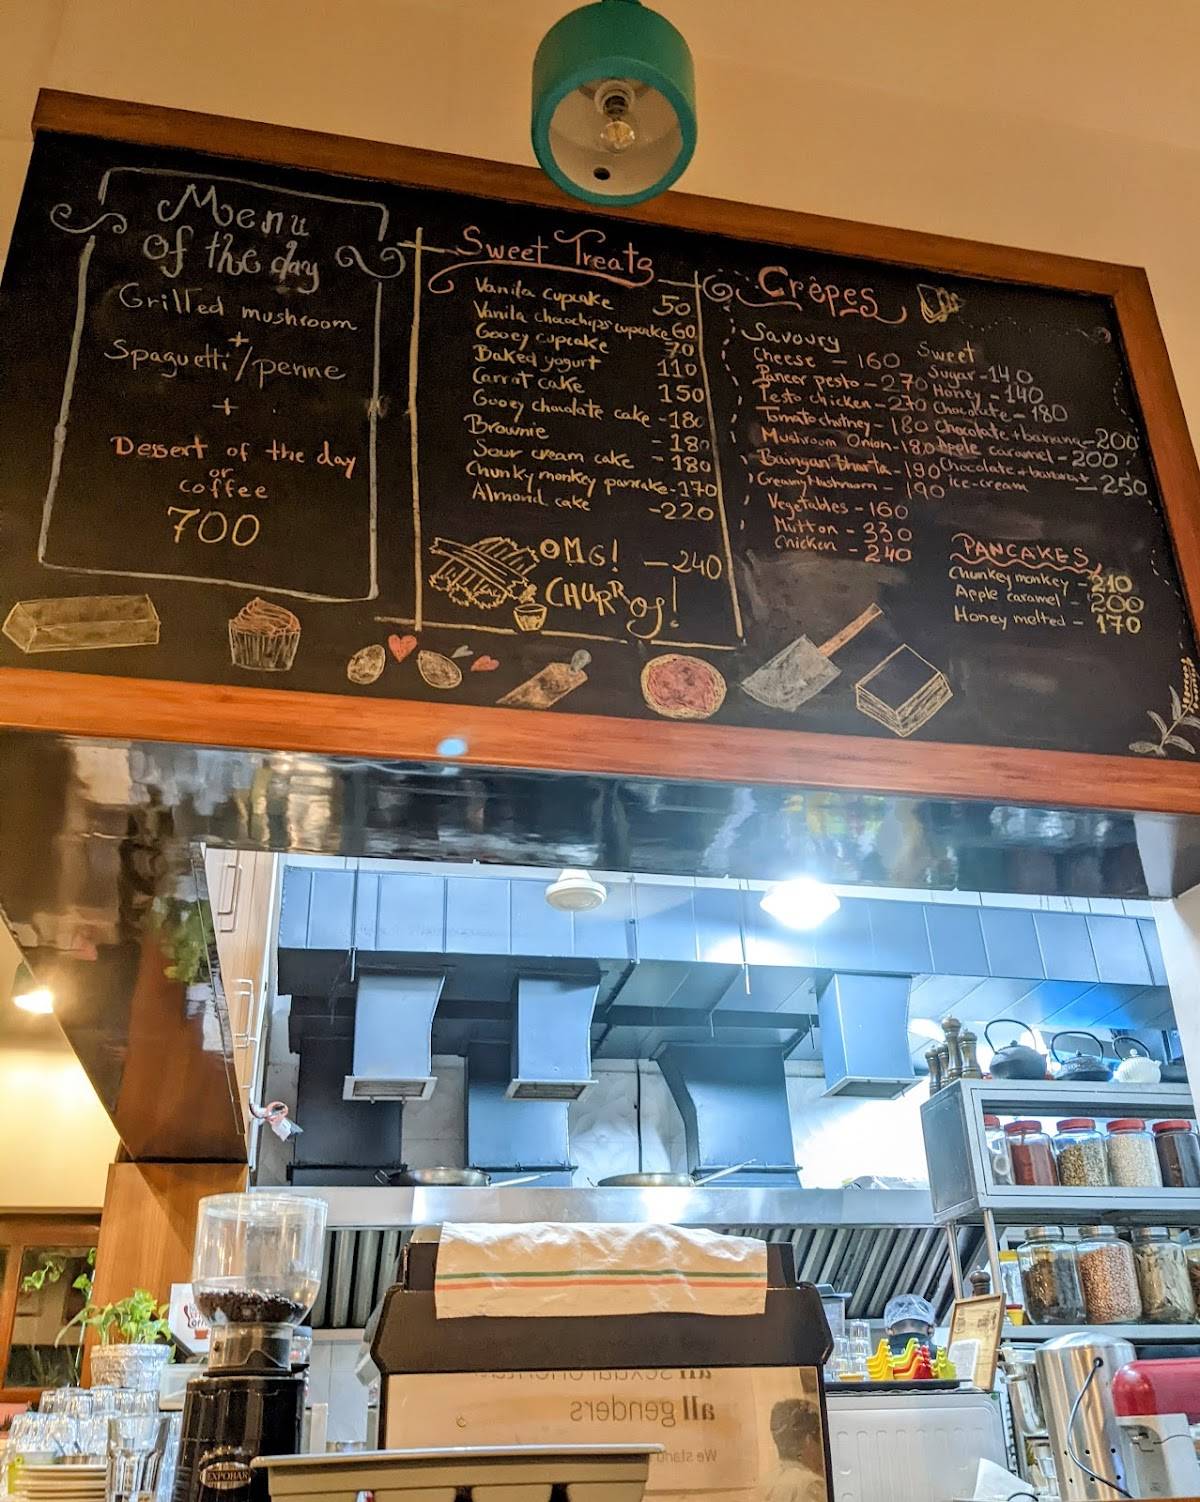 Menu
of the day
Grilled mushroom
+
Spaguetti/penne
+
Dessert of the day
or
coffee
700
Sweet Treats
Vanila cupcake 50
Vanila chocochips cupcake 60
Gooey cupcake 70
Baked yogurt 110
Carrot cake 150
Gooey chocolate cake - 180
Brownie - 180
Sour cream cake - 180
Chunky monkey pancake - 170
Almond cake - 220
OMG! — 240
CHURROS!
Crêpes
Savoury
Cheese — 160
Paneer pesto — 270
Pesto chicken — 270
Tomato chutney - 180
Mushroom Onion - 180
Baingan Bharta - 190
Creamy Mushroom — 190
Vegetables - 160
Mutton - 330
Chicken - 240
Sweet
Sugar - 140
Honey - 140
Chocolate - 180
Chocolate + banana - 200
Apple caramel - 200
Chocolate + banana +
ice-cream — 250
PANCAKES
Chunkey monkey - 210
Apple caramel - 200
Honey melted - 170
all genders
We stand
EXPOBAR